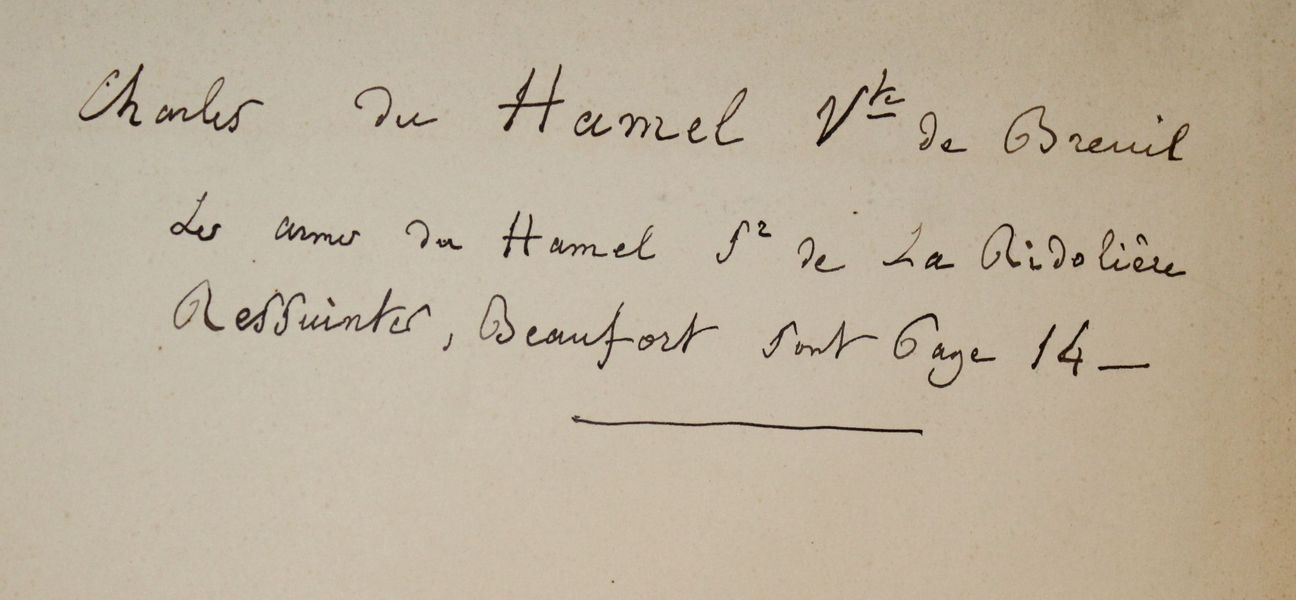 Charles du Hamel Vte de Breuil
Les armes du Hamel Sr de La Ridolière
Ressuintes, Beaufort sont Page 14 —